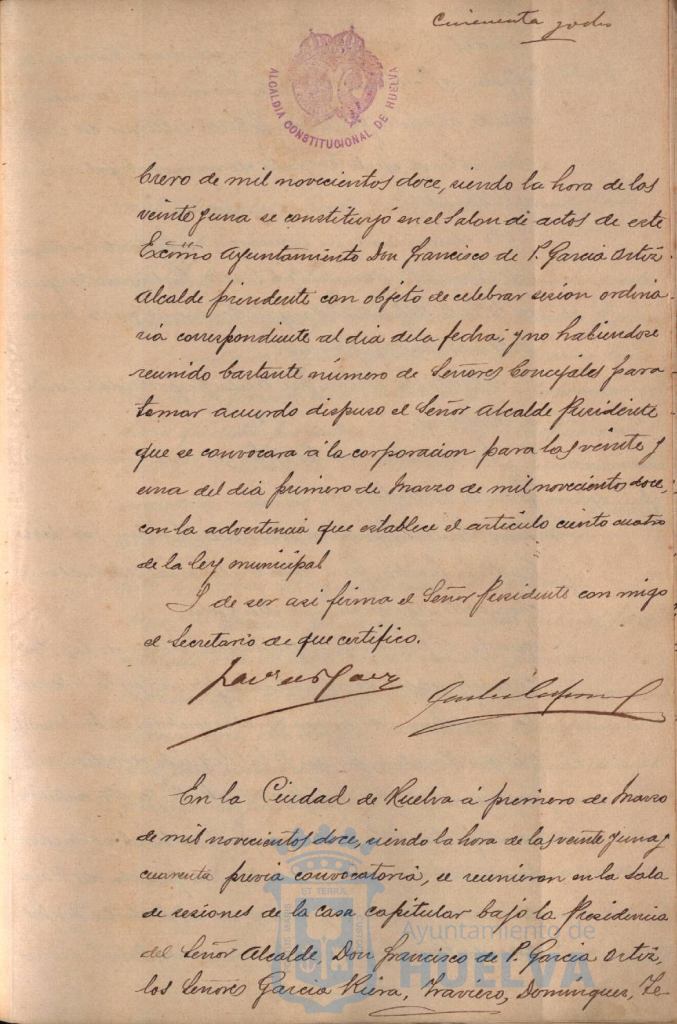 Cincuenta y ocho
ALCALDIA CONSTITUCIONAL DE HUELVA
brero de mil novecientos doce, siendo la hora de las
veinte y una se constituyó en el Salon de actos de este
Excmo Ayuntamiento Don Francisco de P. Garcia Ortiz
Alcalde presidente con objeto de celebrar sesion ordina
ria correspondiente al dia de la fecha; y no habiendose
reunido bastante número de Señores Concejales para
tomar acuerdo dispuso el Señor Alcalde Presidente
que se convocara á la corporacion para las veinte y
una del dia primero de Marzo de mil novecientos doce,
con la advertencia que establece el artículo ciento cuatro
de la ley municipal
Y de ser asi firma el Señor Presidente con migo
el Secretario de que certifico.
En la Ciudad de Huelva á primero de Marzo
de mil novecientos doce, siendo la hora de las veinte y una y
cuarenta previa convocatoria, se reunieron en la Sala
de sesiones de la casa capitular bajo la Presidencia
del Señor Alcalde, Don Francisco de P. Garcia Ortiz,
los Señores Garcia Riera, Traviero, Dominguez, Te
Ayuntamiento de
HUELVA